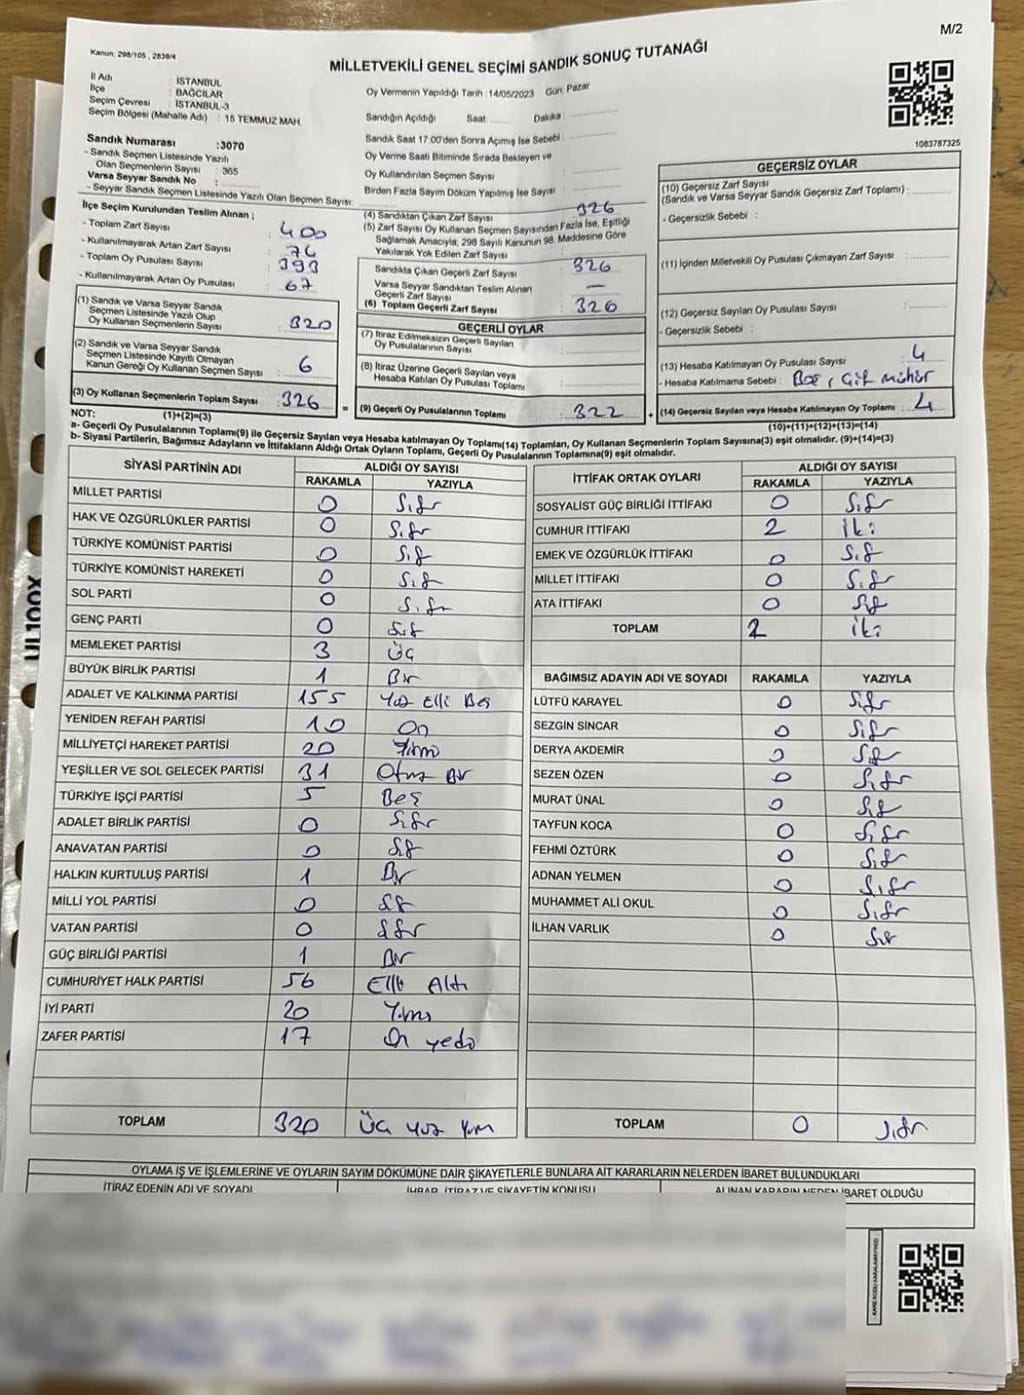 M/2
Kanun: 298/105 , 2839/4
MİLLETVEKİLİ GENEL SEÇİMİ SANDIK SONUÇ TUTANAĞI
İl Adı : İSTANBUL
İlçe : BAĞCILAR
Seçim Çevresi : İSTANBUL-3
Seçim Bölgesi (Mahalle Adı) : 15 TEMMUZ MAH.
Oy Vermenin Yapıldığı Tarih :14/05/2023 Gün: Pazar
Sandığın Açıldığı Saat Dakika :
Sandık Numarası :3070
- Sandık Seçmen Listesinde Yazılı
Olan Seçmenlerin Sayısı : 365
Varsa Seyyar Sandık No :
- Seyyar Sandık Seçmen Listesinde Yazılı Olan Seçmen Sayısı:
Sandık Saat 17:00'den Sonra Açımış İse Sebebi :
Oy Verme Saati Bitiminde Sırada Bekleyen ve
Oy Kullandırılan Seçmen Sayısı :
Birden Fazla Sayım Döküm Yapılmış İse Sayısı :
1083787325
İlçe Seçim Kurulundan Teslim Alınan ;
- Toplam Zarf Sayısı : 400
- Kullanılmayarak Artan Zarf Sayısı : 74
- Toplam Oy Pusulası Sayısı : 393
- Kullanılmayarak Artan Oy Pusulası : 67
(1) Sandık ve Varsa Seyyar Sandık
Seçmen Listesinde Yazılı Olup
Oy Kullanan Seçmenlerin Sayısı : 320
(2) Sandık ve Varsa Seyyar Sandık
Seçmen Listesinde Kayıtlı Olmayan
Kanun Gereği Oy Kullanan Seçmen Sayısı : 6
(3) Oy Kullanan Seçmenlerin Toplam Sayısı : 326
(1)+(2)=(3)
(4) Sandıktan Çıkan Zarf Sayısı : 326
(5) Zarf Sayısı Oy Kullanan Seçmen Sayısından Fazla İse, Eşitliği
Sağlamak Amacıyla; 298 Sayılı Kanunun 98. Maddesine Göre
Yakılarak Yok Edilen Zarf Sayısı :
Sandıkta Çıkan Geçerli Zarf Sayısı : 326
Varsa Seyyar Sandıktan Teslim Alınan
Geçerli Zarf Sayısı : —
(6) Toplam Geçerli Zarf Sayısı : 326
GEÇERLİ OYLAR
(7) İtiraz Edilmeksizin Geçerli Sayılan
Oy Pusulalarının Sayısı :
(8) İtiraz Üzerine Geçerli Sayılan veya
Hesaba Katılan Oy Pusulası Toplamı :
= (9) Geçerli Oy Pusulalarının Toplamı : 322 +
GEÇERSİZ OYLAR
(10) Geçersiz Zarf Sayısı
(Sandık ve Varsa Seyyar Sandık Geçersiz Zarf Toplamı) :
- Geçersizlik Sebebi :
(11) İçinden Milletvekili Oy Pusulası Çıkmayan Zarf Sayısı :
(12) Geçersiz Sayılan Oy Pusulası Sayısı :
- Geçersizlik Sebebi :
(13) Hesaba Katılmayan Oy Pusulası Sayısı : 4
- Hesaba Katılmama Sebebi : Boş, Çift mühür
(14) Geçersiz Sayılan veya Hesaba Katılmayan Oy Toplamı : 4
(10)+(11)+(12)+(13)=(14)
NOT:
a- Geçerli Oy Pusulalarının Toplamı(9) ile Geçersiz Sayılan veya Hesaba katılmayan Oy Toplamı(14) Toplamları, Oy Kullanan Seçmenlerin Toplam Sayısına(3) eşit olmalıdır. (9)+(14)=(3)
b- Siyasi Partilerin, Bağımsız Adayların ve İttifakların Aldığı Ortak Oyların Toplamı, Geçerli Oy Pusulalarının Toplamına(9) eşit olmalıdır.
SİYASİ PARTİNİN ADI ALDIĞI OY SAYISI
RAKAMLA YAZIYLA
MİLLET PARTİSİ 0 Sıfır
HAK VE ÖZGÜRLÜKLER PARTİSİ 0 Sıfır
TÜRKİYE KOMÜNİST PARTİSİ 0 Sıfır
TÜRKİYE KOMÜNİST HAREKETİ 0 Sıfır
SOL PARTİ 0 Sıfır
GENÇ PARTİ 0 Sıfır
MEMLEKET PARTİSİ 3 Üç
BÜYÜK BİRLİK PARTİSİ 1 Bir
ADALET VE KALKINMA PARTİSİ 155 Yüz Elli Beş
YENİDEN REFAH PARTİSİ 10 On
MİLLİYETÇİ HAREKET PARTİSİ 20 Yirmi
YEŞİLLER VE SOL GELECEK PARTİSİ 31 Otuz Bir
TÜRKİYE İŞÇİ PARTİSİ 5 Beş
ADALET BİRLİK PARTİSİ 0 Sıfır
ANAVATAN PARTİSİ 0 Sıfır
HALKIN KURTULUŞ PARTİSİ 1 Bir
MİLLİ YOL PARTİSİ 0 Sıfır
VATAN PARTİSİ 0 Sıfır
GÜÇ BİRLİĞİ PARTİSİ 1 Bir
CUMHURİYET HALK PARTİSİ 56 Elli Altı
İYİ PARTİ 20 Yirmi
ZAFER PARTİSİ 17 On yedi
TOPLAM 320 Üç yüz Yirmi
İTTİFAK ORTAK OYLARI ALDIĞI OY SAYISI
RAKAMLA YAZIYLA
SOSYALİST GÜÇ BİRLİĞİ İTTİFAKI 0 Sıfır
CUMHUR İTTİFAKI 2 İki
EMEK VE ÖZGÜRLÜK İTTİFAKI 0 Sıfır
MİLLET İTTİFAKI 0 Sıfır
ATA İTTİFAKI 0 Sıfır
TOPLAM 2 İki
BAĞIMSIZ ADAYIN ADI VE SOYADI RAKAMLA YAZIYLA
LÜTFÜ KARAYEL 0 Sıfır
SEZGİN SİNCAR 0 Sıfır
DERYA AKDEMİR 0 Sıfır
SEZEN ÖZEN 0 Sıfır
MURAT ÜNAL 0 Sıfır
TAYFUN KOCA 0 Sıfır
FEHMİ ÖZTÜRK 0 Sıfır
ADNAN YELMEN 0 Sıfır
MUHAMMET ALİ OKUL 0 Sıfır
İLHAN VARLIK 0 Sıfır
TOPLAM 0 Sıfır
OYLAMA İŞ VE İŞLEMLERİNE VE OYLARIN SAYIM DÖKÜMÜNE DAİR ŞİKAYETLERLE BUNLARA AİT KARARLARIN NELERDEN İBARET BULUNDUKLARI
İTİRAZ EDENİN ADI VE SOYADI İHBAR, İTİRAZ VE ŞİKAYETİN KONUSU ALINAN KARARIN NEDEN İBARET OLDUĞU
KARE KODU KARALAMAYINIZ
UL100X